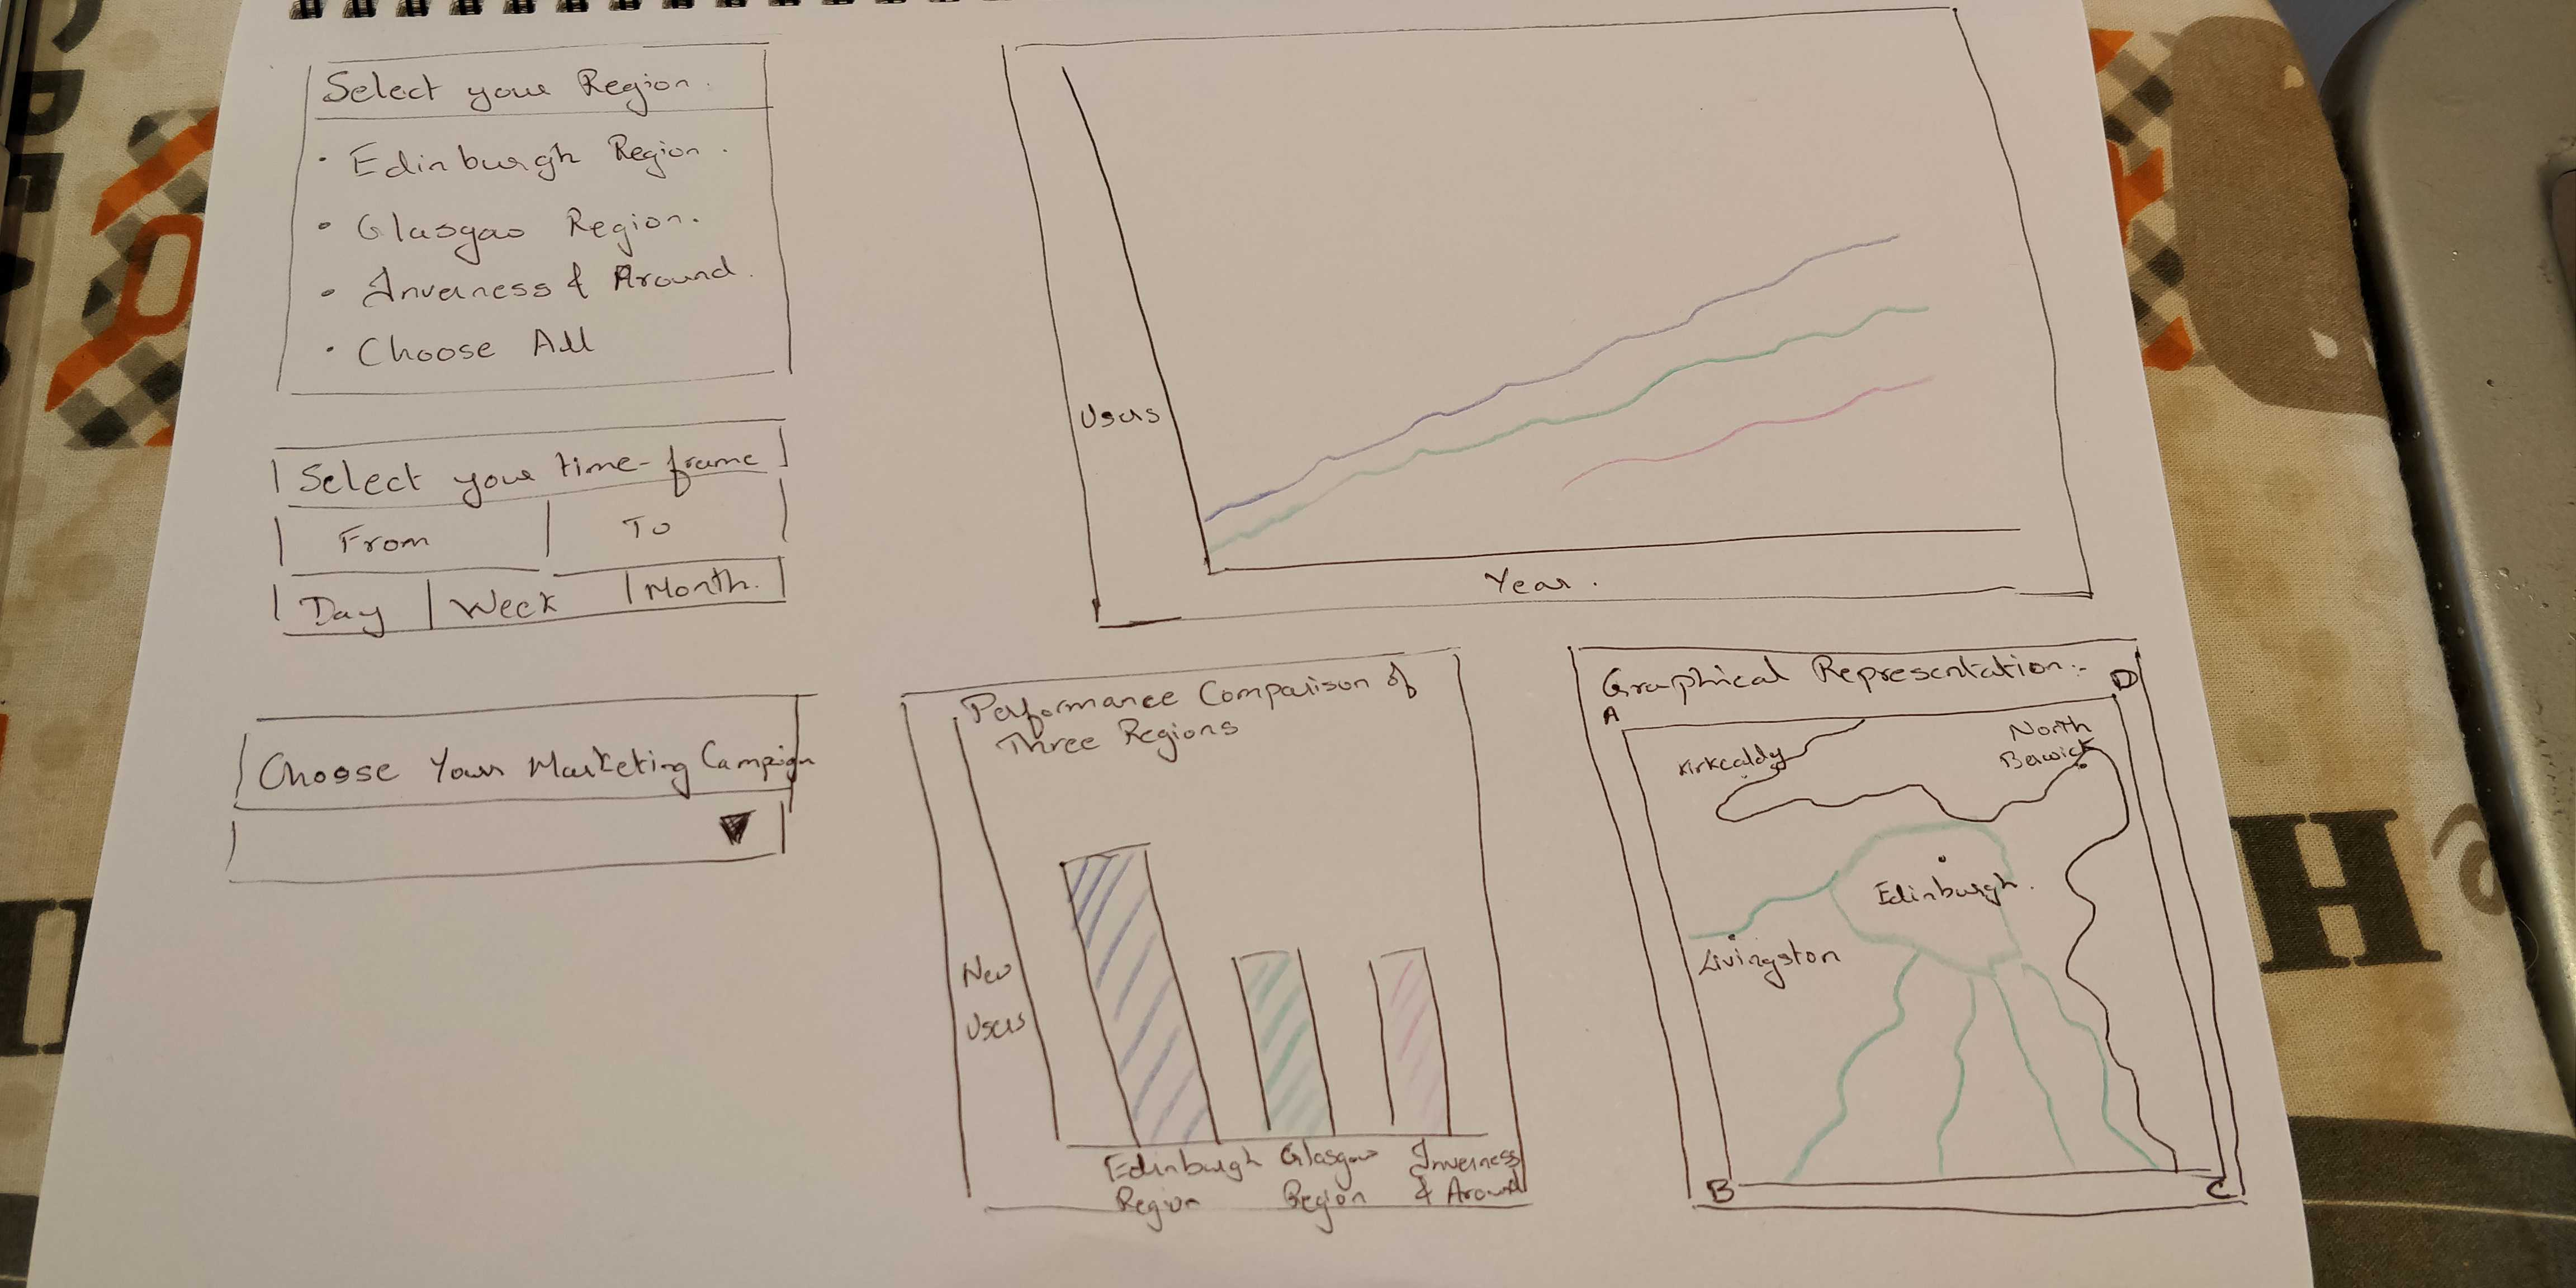 Select your Region.
• Edinburgh Region.
• Glasgow Region.
• Inverness & Around.
• Choose All
Select your time-frame
From To
Day Week Month.
Choose Your Marketing Campaign
Users
Year.
Performance Comparison of
Three Regions
New
Users
Edinburgh Region
Glasgow Region
Inverness & Around
Graphical Representation:-
A D
Kirkcaldy
North
Berwick
Edinburgh.
Livingston
B C
H